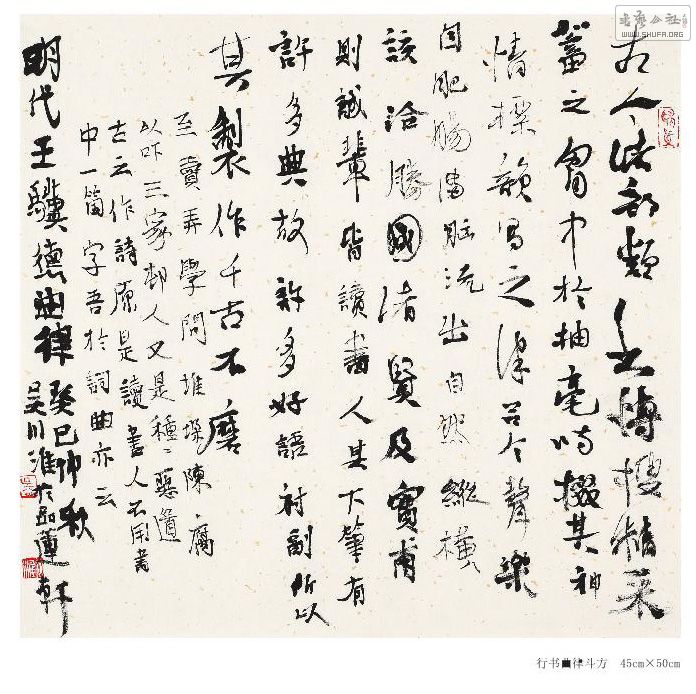 古人諸部類博搜精采
蓄之胷中於抽毫時掇其神
情標韻寫之律呂令聲樂
自肥腸滿腦流出自然縱橫
該洽勝國諸賢及實甫
則誠輩皆讀書人其下筆有
許多典故許多好語衬副所以
其製作千古不磨
至賣弄學問堆垛陳腐
以吓三家邨人又是種〻惡道
古云作詩原是讀書人不用書
中一箇字吾於詞曲亦云
明代王驥德曲律癸巳仲秋
吳川淮於品蓮軒
书艺公社
WWW.SHUFA.ORG
行书曲律斗方 45cm×50cm